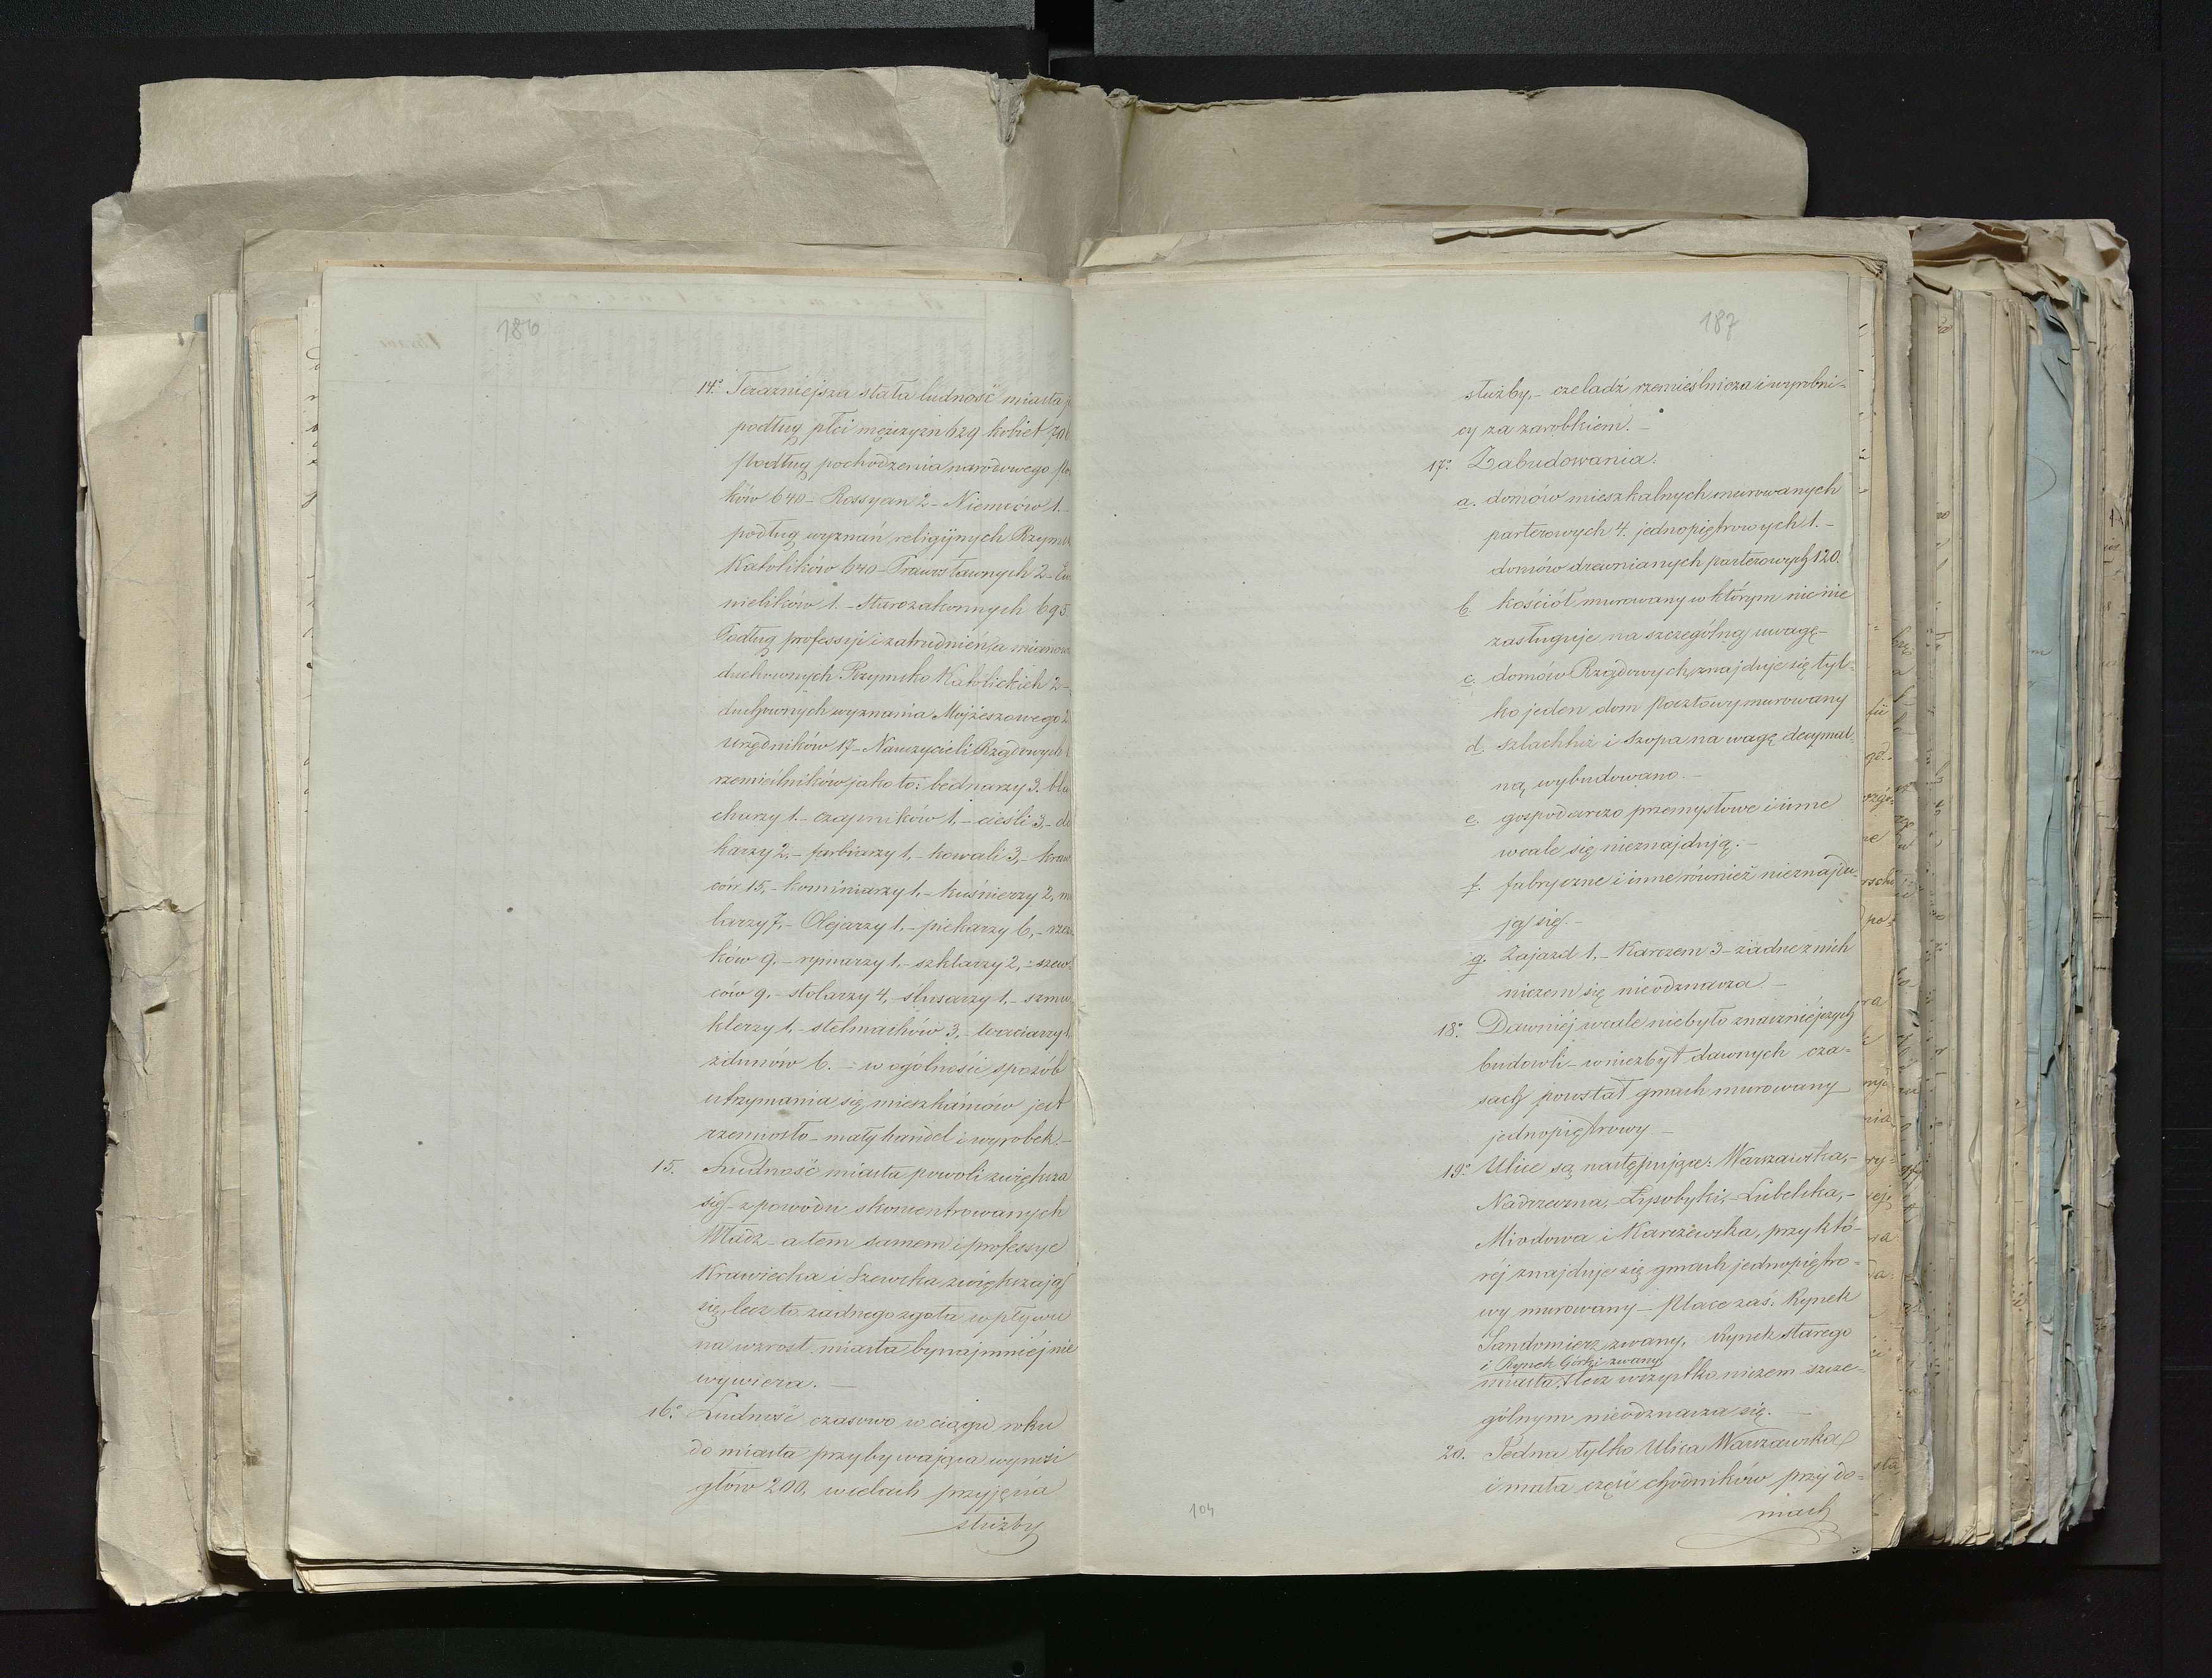 186
14° Teraźniejsza stała ludność miasta p
podług płci mężczyzn 629 kobiet 70
podług pochodzenia narodowego Po
ków 640 - Rossyan 2 - Niemców 1. -
podług wyznań religijnych Rzyms
Katolików 640 - Prawosławnych 2 - Ew
nielików 1. - Starozakonnych 695
Podług professyi i zatrudnienia mianow
duchownych Rzymsko Katolickich 2 -
duchownych wyznania Mojżeszowego 2
urzędników 17 - Nauczycieli Rządowych 1
rzemieślników jako to: bednarzy 3. bla
charzy 1. - czapników 1, - cieśli 3, - de
karzy 2, - farbiarzy 1, - kowali 3, - kraw
ców 15, - kominiarzy 1, - kuśnierzy 2, m
larzy 7, - Olejarzy 1, - piekarzy 6, - rzez
ków 9, - rymarzy 1, - szklarzy 2, - szew
ców 9, - stolarzy 4, ślusarzy 1, - szmu
klerzy 1, - stelmachów 3, - waciarzy 1,
zdunów 6. - w ogólności sposób
utrzymania się mieszkańców jest
rzemiosło - mały handel i wyrobek. -
15. Ludność miasta powoli zwiększa
się - z powodu skoncentrowanych
Władz - a tem samem i professye
Krawiecka i Szewcka zwiększają
się, lecz to żadnego zgoła wpływu
na wzrost miasta bynajmniéj nie
wywiera. -
16° Ludność czasowo w ciągu roku
do miasta przybywająca wynosi
głów 200, w celach przyjęcia
służby
187
służby, - czeladź rzemieślnicza i wyrobni-
cy za zarobkiem. -
17° Zabudowania:
a. domów mieszkalnych murowanych
parterowych 4. jednopiętrowych 1. -
domów drewnianych parterowych 120.
b. kościół murowany w którym nic nie
zasługuje na szczególną uwagę -
c. domów Rządowych, znajduje się tyl-
ko jeden dom pocztowy murowany
d. szlachtuz i szopa na wagę decymal-
ną wybudowano. -
e. gospodarczo przemysłowe i inne
wcale się nieznajdują. -
f. fabryczne i inne również nieznajdu-
ją się. -
g. Zajazd 1, - Karczem 3 - żadne z nich
niczem się nieodznacza -
18° Dawniéj wcale niebyło znaczniéjszych
budowli - w niezbyt dawnych cza-
sach powstał gmach murowany
jednopiętrowy. -
19° Ulice są następujące: Warszawska, -
Nadrzeczna, - Łysobyki, - Lubelska, -
Miodowa i Karczewska, przy któ-
réj znajduje się gmach jednopiętro-
wy murowany - Place zaś: Rynek
Sandomierz zwany, Rynek starego
i Rynek Górki zwany
miasta, + lecz wszystko niczem szcze-
gólnym nieodznacza się. -
20. Jedna tylko Ulica Warszawska
i mała część chodników przy do-
mach
104